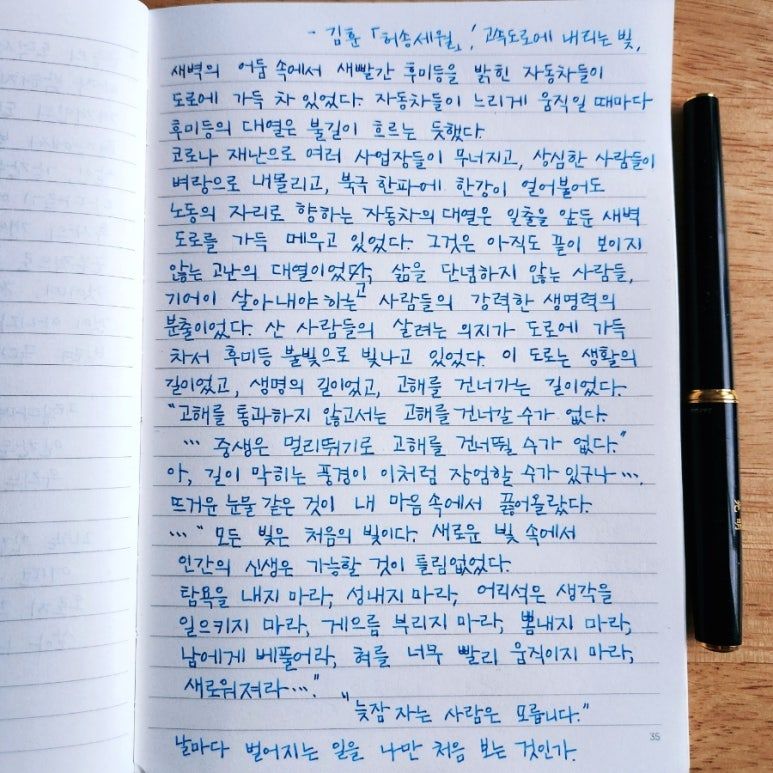 - 김훈 「허송세월」, '고속도로에 내리는 빛,
새벽의 어둠 속에서 새빨간 후미등을 밝힌 자동차들이
도로에 가득 차 있었다. 자동차들이 느리게 움직일 때마다
후미등의 대열은 불길이 흐르는 듯했다.
코로나 재난으로 여러 사업장들이 무너지고, 상심한 사람들이
벼랑으로 내몰리고, 북극 한파에 한강이 얼어붙어도
노동의 자리로 향하는 자동차의 대열은 일출을 앞둔 새벽
도로를 가득 메우고 있었다. 그것은 아직도 끝이 보이지
않는 고난의 대열이었고, 삶을 단념하지 않는 사람들,
기어이 살아내야 하는 사람들의 강력한 생명력의
분출이었다. 산 사람들의 살려는 의지가 도로에 가득
차서 후미등 불빛으로 빛나고 있었다. 이 도로는 생활의
길이었고, 생명의 길이었고, 고해를 건너가는 길이었다.
"고해를 통과하지 않고서는 고해를 건너갈 수가 없다.
… 중생은 멀리뛰기로 고해를 건너뛸 수가 없다."
아, 길이 막히는 풍경이 이처럼 장엄할 수가 있구나….
뜨거운 눈물 같은 것이 내 마음 속에서 끓어올랐다.
…" 모든 빛은 처음의 빛이다. 새로운 빛 속에서
인간의 신생은 가능할 것이 틀림없었다.
탐욕을 내지 마라, 성내지 마라, 어리석은 생각을
일으키지 마라, 게으름 부리지 마라, 뽐내지 마라,
남에게 베풀어라, 혀를 너무 빨리 움직이지 마라,
새로워져라…."
"늦잠 자는 사람은 모릅니다."
날마다 벌어지는 일을 나만 처음 보는 것인가.
35